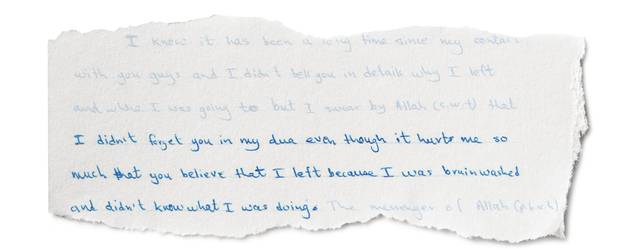 I know it has been a long time since my contact
with you guys and I didn't tell you in details why I left
and where I was going to but I swear by Allah (s.w.t) that
I didn't forget you in my dua even though it hurts me so
much that you believe that I left because I was brainwashed
and didn't know what I was doing. The messenger of Allah